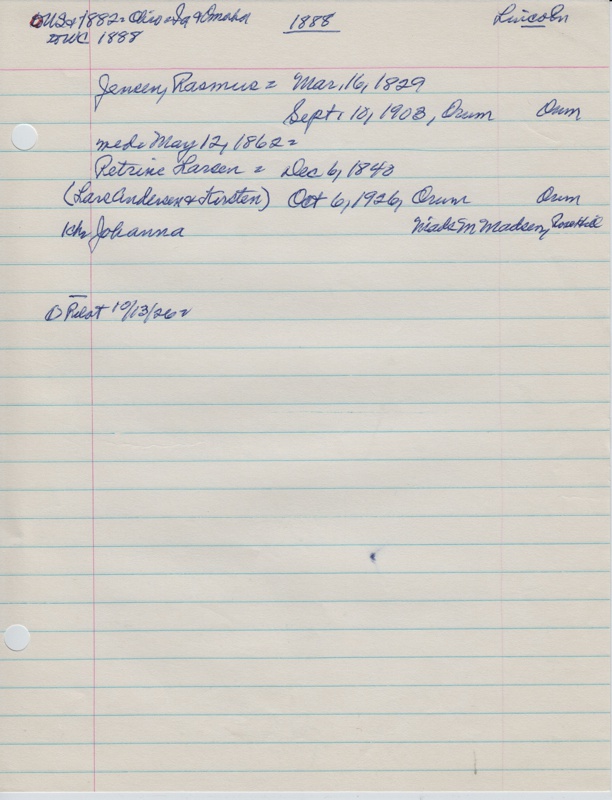 US 1882 = Ohio = Ia & Omaha 1888 Lincoln
WC 1888
Jensen, Rasmus = Mar, 16, 1829
Sept. 10, 1903, Orum Orum
med. May 12, 1862 =
Petrine Larsen = Dec 6, 1843
(Lars Andersen & Kirsten) Oct 6, 1926, Orum Orum
1ch, Johanna Mads M Madsen, Rose Hill
O Pilot 10/13/26 =